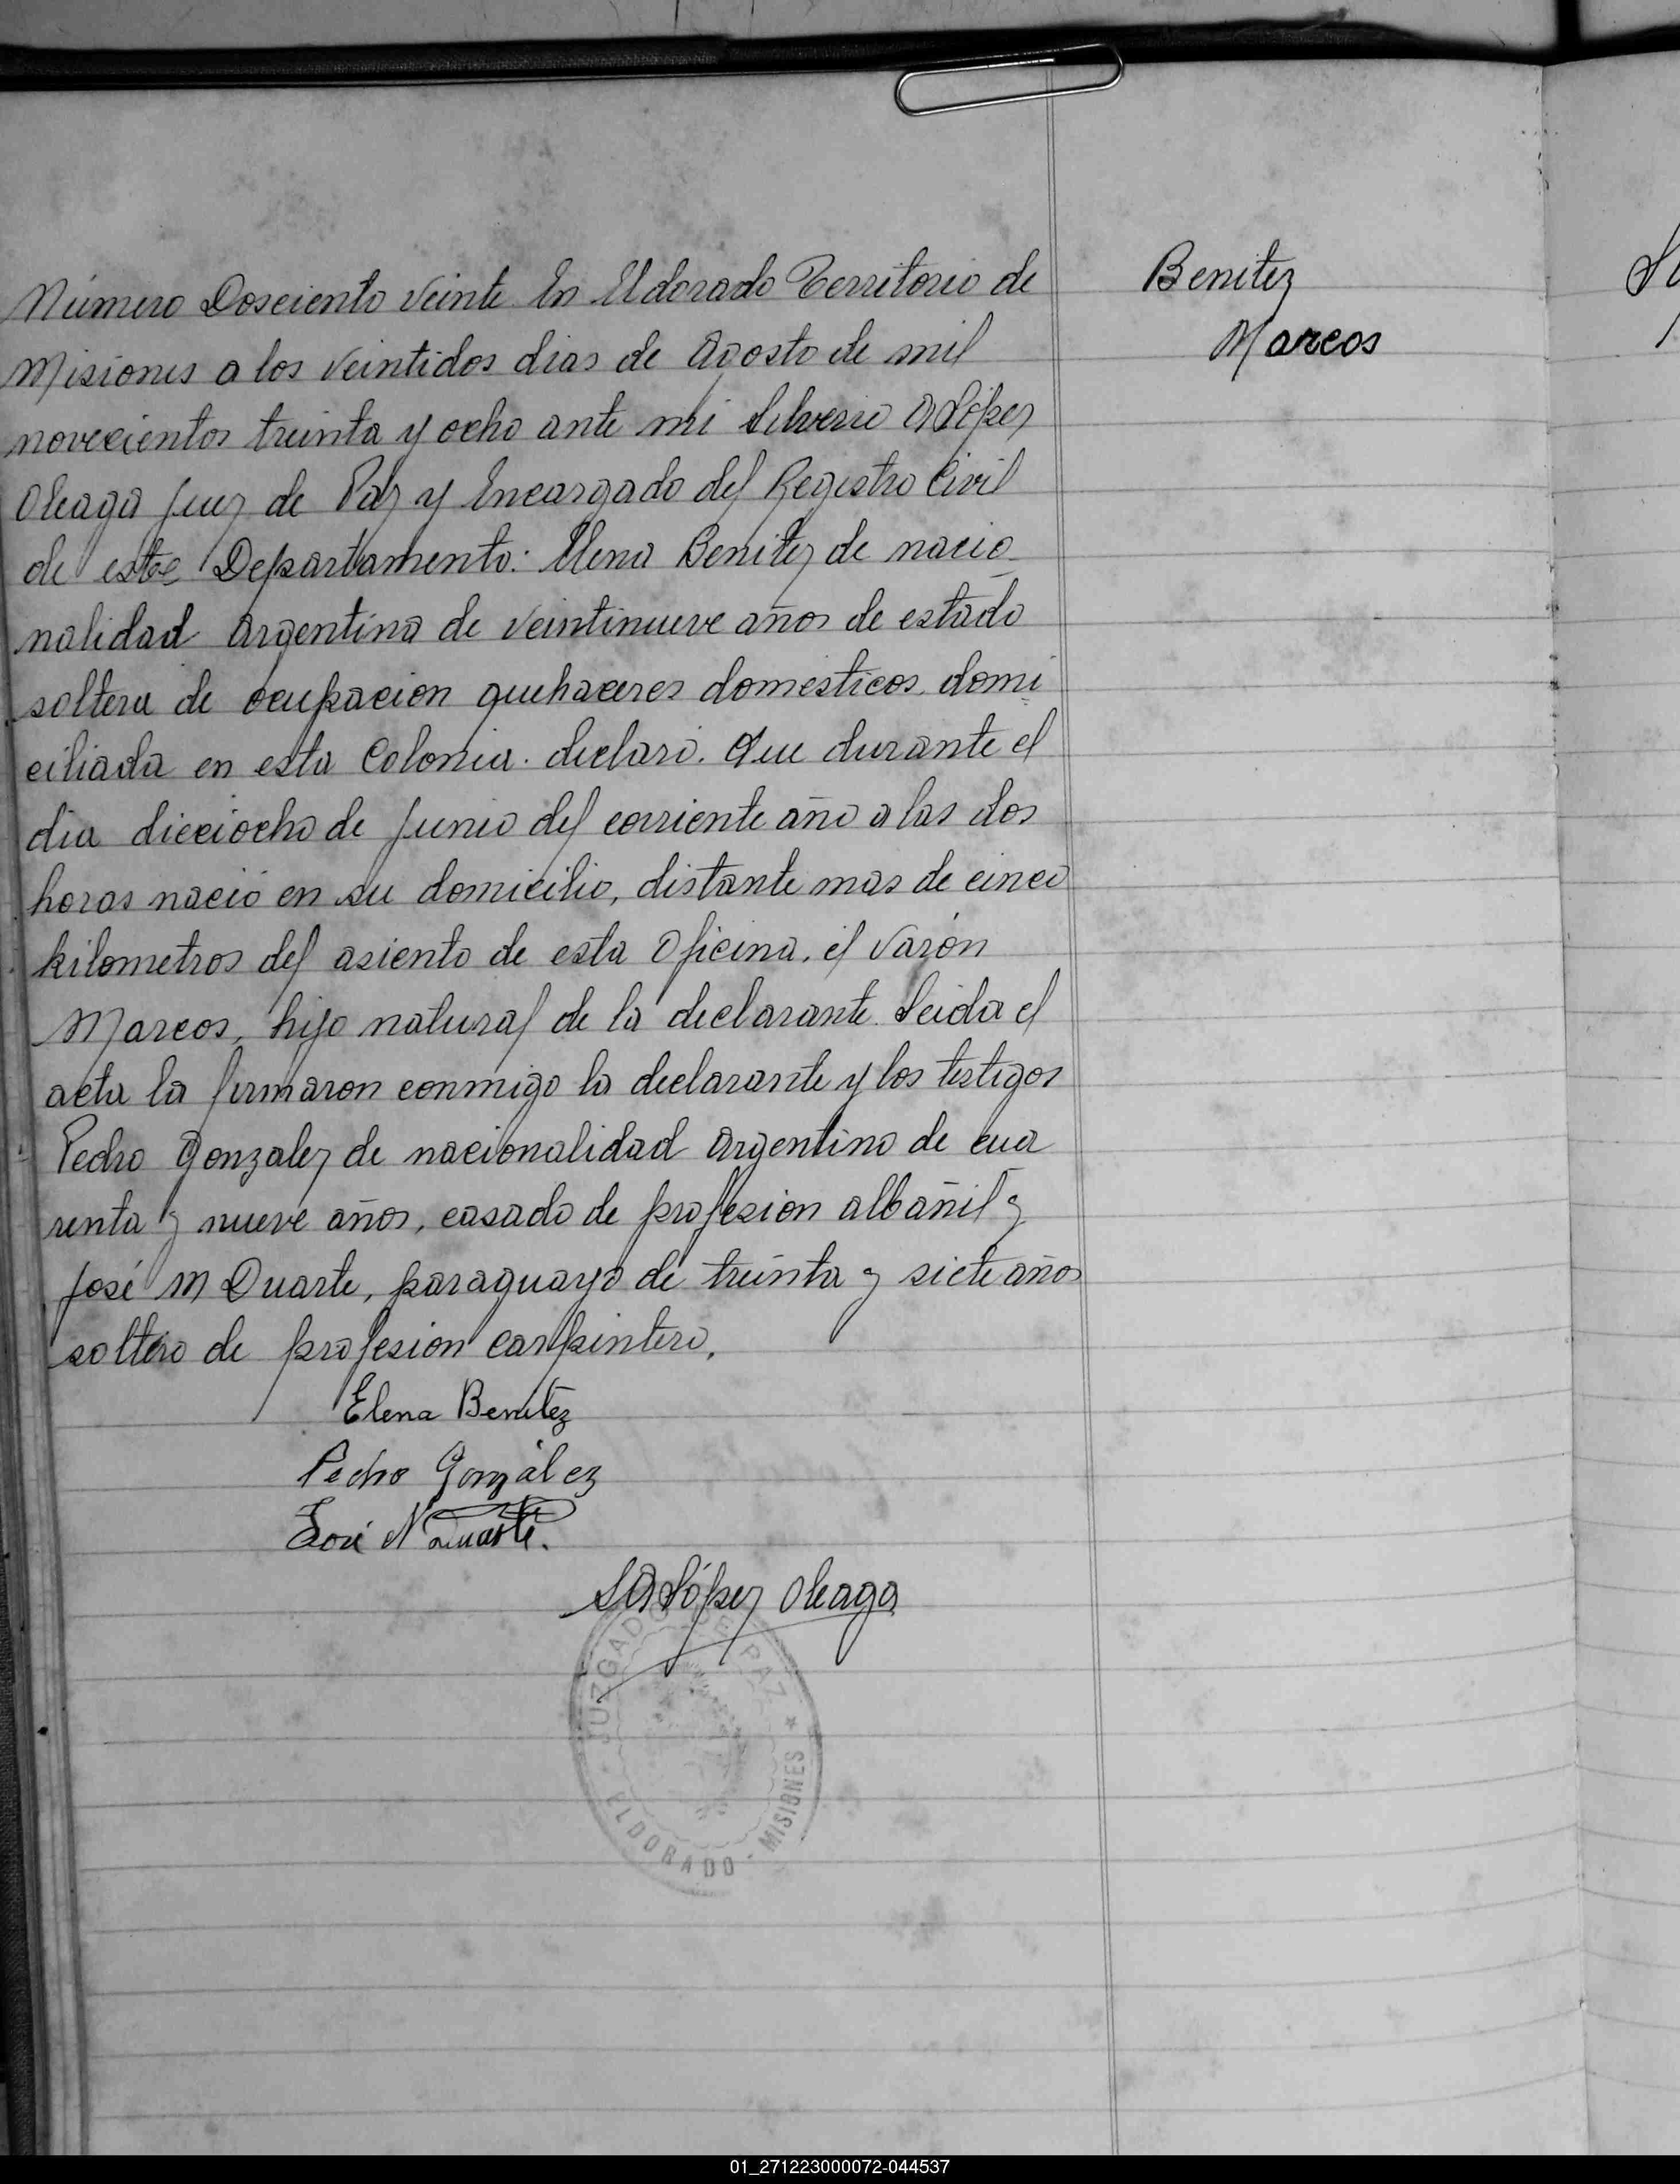 Número Dosciento Veinte En Eldorado Territorio de
Misiones a los veintidos dias de Agosto de mil
novecientos treinta y ocho ante mi Silverio A López
Oleaga Juez de Paz y Encargado del Registro Civil
de este Departamento: Elena Benitez de nacio
nalidad Argentina de veintinueve años de estado
soltera de ocupacion quehaceres domesticos domi
ciliada en esta Colonia. declaró. Que durante el
dia dieciocho de Junio del corriente año a las dos
horas nació en su domicilio, distante mas de cinco
kilometros del asiento de esta Oficina, el varón
Marcos, hijo natural de la declarante. Leida el
acta la firmaron conmigo la declarante y los testigos
Pedro Gonzalez de nacionalidad Argentino de cua
renta y nueve años, casado de profesion albañil y
José M Duarte, paraguayo de treinta y siete años
soltero de profesion carpintero.
Elena Benitez
Pedro González
José N Duarte.
S A López Oleaga
JUZGADO DE PAZ
ELDORADO - MISIONES
Benitez
Marcos
01_271223000072-044537